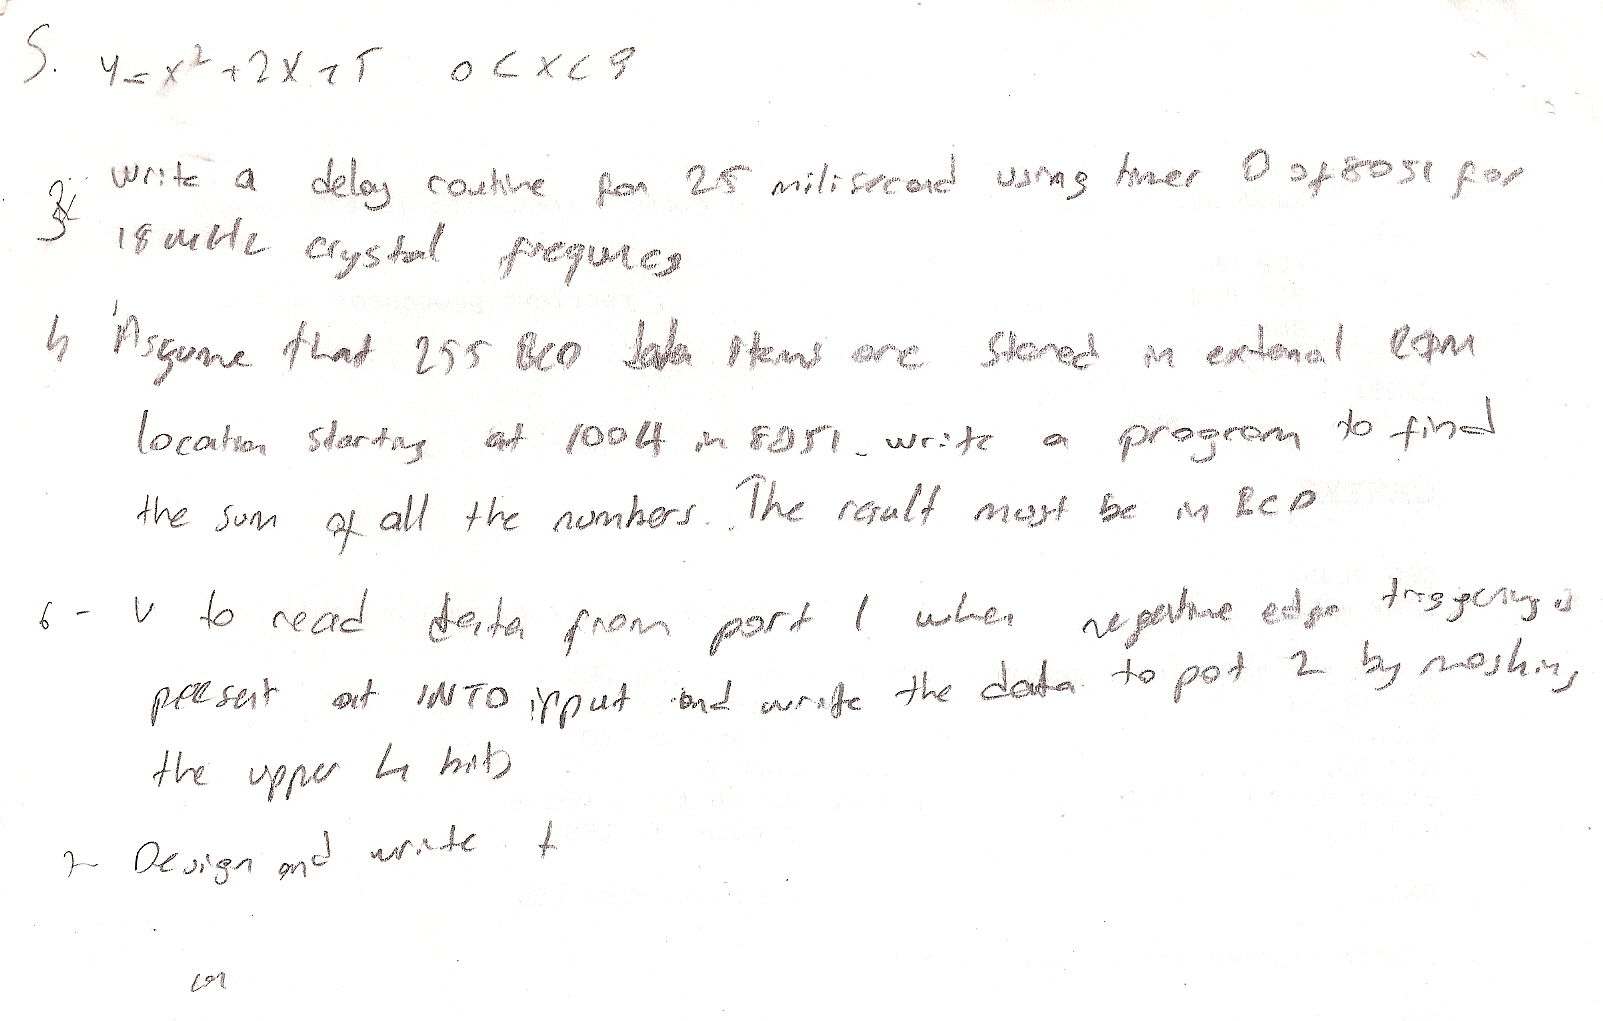 5. y=x²+2x+5 0<x<9
3. write a delay routine for 25 milisecond using timer 0 of 8051 for
18 MHz crystal frequncy
4 Assume that 255 BCD data items are stored in external
location starting at 100H in 8051. write a program to find
the sum of all the numbers. The result must be in BCD
6- to read data from port 1 when negative edge triggering is
present at INT0 input and write the data to pot 2 by masking
the upper 4 bits
7- Design and write t